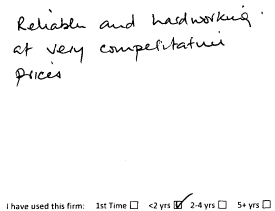 Reliable and hardworking
at very competitative
prices
I have used this firm: 1st Time ☐ <2 yrs ☑ 2-4 yrs ☐ 5+ yrs ☐